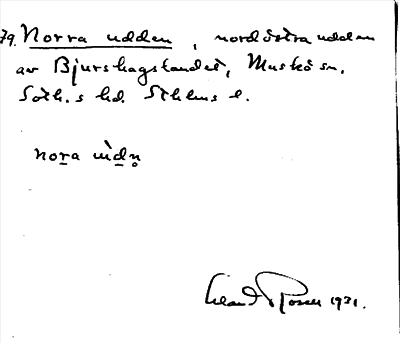 79. Norra udden, nordöstra udden
av Bjurshagslandet, Muskö sn.
Soth.s hd. Sthlms l.
nora ùdn̥
1931.